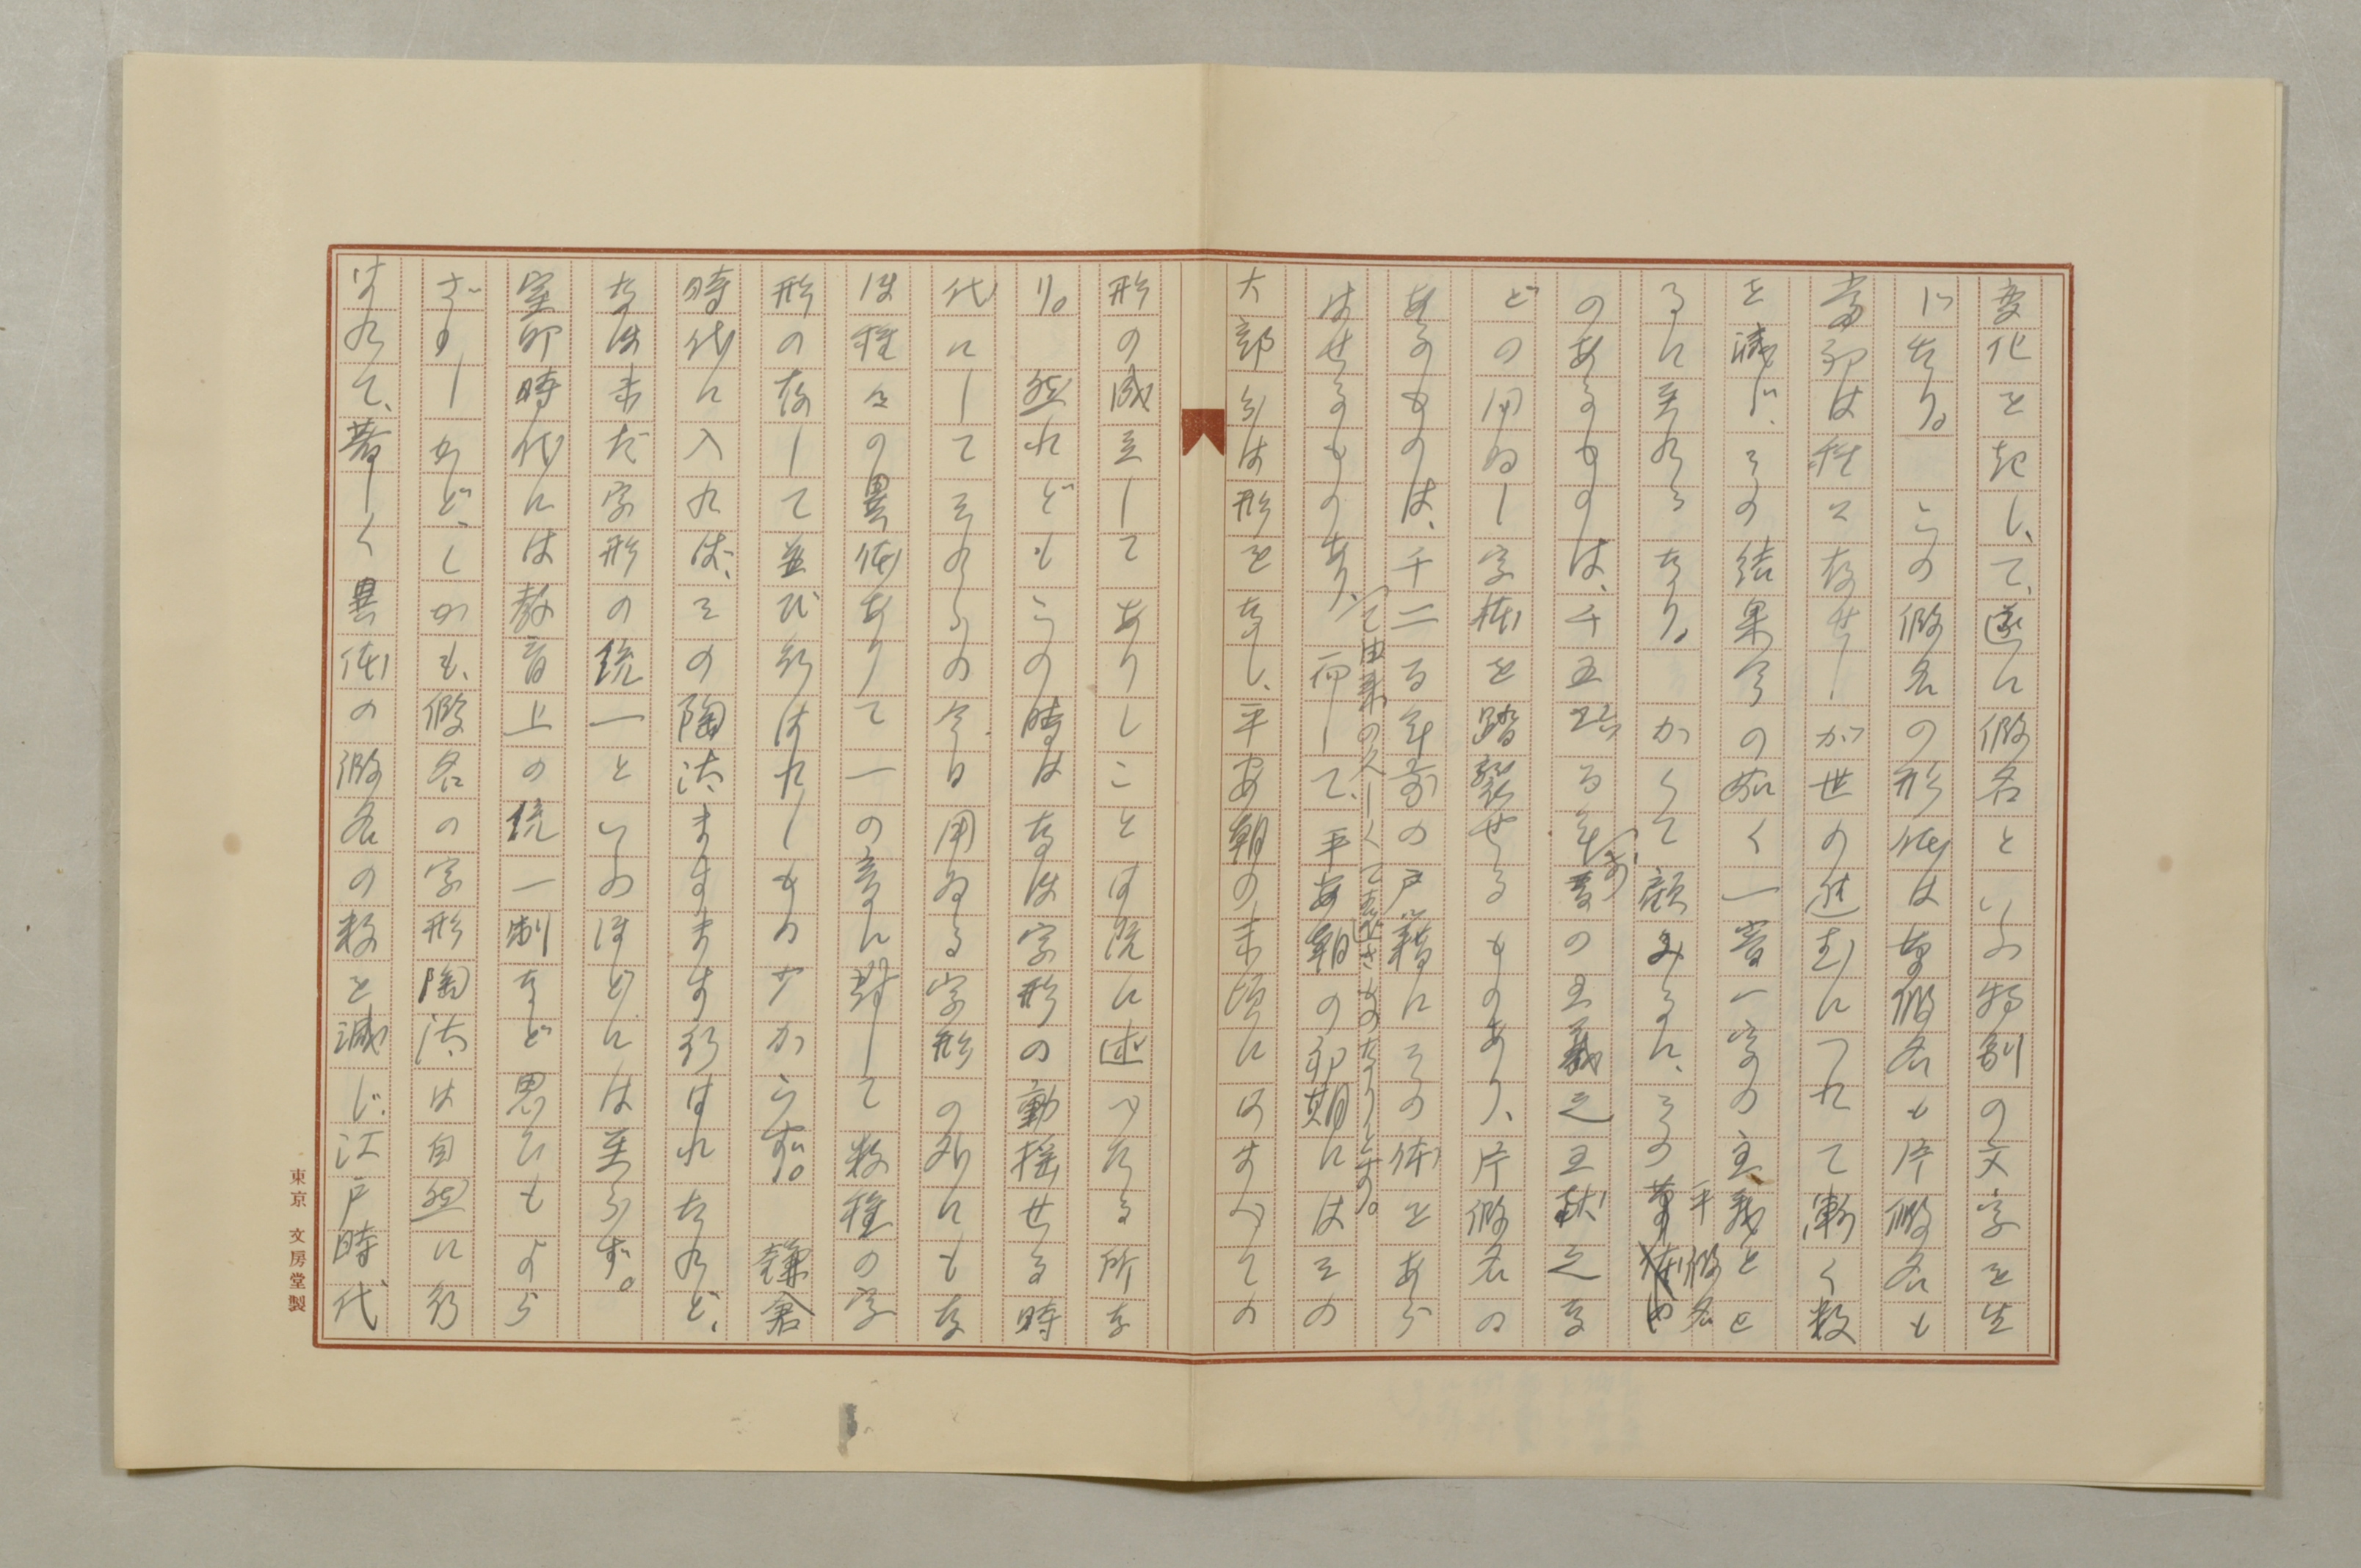 変化を起して、遂に仮名といふ特別の文字を生
じたり。この仮名の形体は草仮名も片仮名も
当初は種々存せしが世の進むにつれて漸く数
を減じ、その結果今の如く一音一字の主義とな
るに至れるなり。かくて顧みるに、その平仮名
のあるものは、千五六百年前の王羲之王献之な
どの用ゐし字体を踏襲せるものあり、片仮名の
あるものは、千二百年前の戸籍にその体をあら
はせるものありて由来の久しくて遠きものなりとす。而して、平安朝の初期にはその
大部分は形をなし、平安朝の末頃にはすべての
形の成立してありしことは既に述べたる所な
り。然れどもこの時はなほ字形の動揺せる時
代にしてそれらの今日用ゐる字形の外にもな
ほ種々の異体ありて一の音に対して数種の字
形の存して並び行はれしもの少からず。鎌倉
時代に入れば、その陶汰ますます行はれたれど、
なほ未だ字形の統一といふほどには至らず。
室町時代には教育上の統一制など思ひもよら
ざりしかど、しかも、仮名の字形陶汰は自然に行
はれて、著しく異体の仮名の数を減じ江戸時代
東京 文房堂製